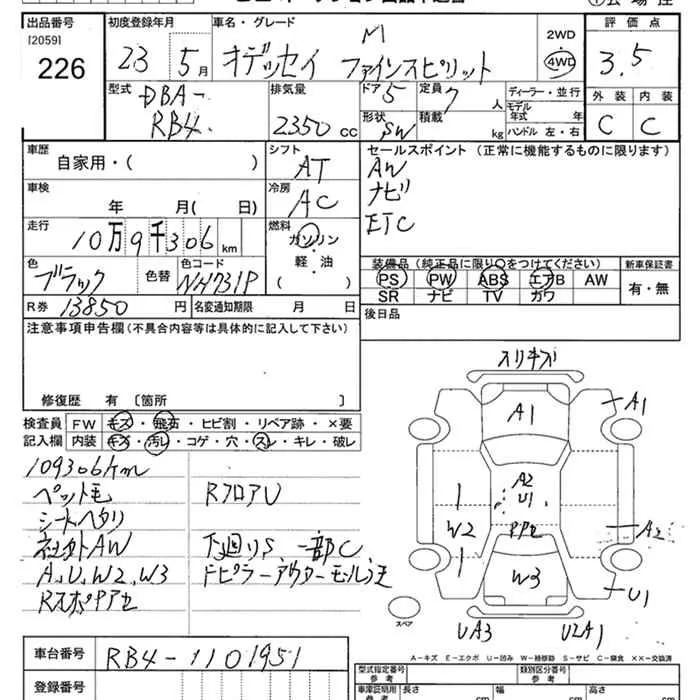 出品番号
[2059]
226
初度登録年月
23 5月
車名・グレード
オデッセイ M ファインスピリット
2WD
4WD
評価点
3.5
外装 内装
C C
型式
DBA-
RB4
排気量
2350 cc
ドア 5
定員 7 人
形状 SW
積載 kg
ディーラー・並行
モデル年式 年
ハンドル 左・右
車歴
自家用・( )
シフト
AT
セールスポイント (正常に機能するものに限ります)
AW
ナビ
ETC
車検
年 月( 日)
冷房
AC
走行
10万9千306km
燃料
ガソリン
・
軽・油
( )
色
ブラック
色替
色コード
NH731P
装備品(純正品に限り○をつけてください)
PS PW ABS エアB AW
SR ナビ TV カワ
新車保証書
有・無
R券 13850円
名変通知期限 月 日
後日品
注意事項申告欄(不具合内容等は具体的に記入して下さい)
修復歴 有 〔箇所 〕
検査員
記入欄
FW キズ・飛石・ヒビ割・リペア跡・×要
内装 キズ・汚レ・コゲ・穴・スレ・キレ・破レ
109306km
ペット毛 RフロアU
シートヘタリ
社外AW 下廻りS、一部C
A,U,W2,W3 ドピラーアウターモール浮
スリキズ
A1
A1
A2
U1
W2
A2
W3
U1
UA3 U2A1
スペア
A-キズ E-エクボ U-凹み W-補修跡 S-サビ C-腐食 ××-交換済
車台番号
RB4-1101951
登録番号
型式指定番号
参考
類別区分番号
参考
車庫証明用
参考
長さ cm
幅 cm
高さ cm